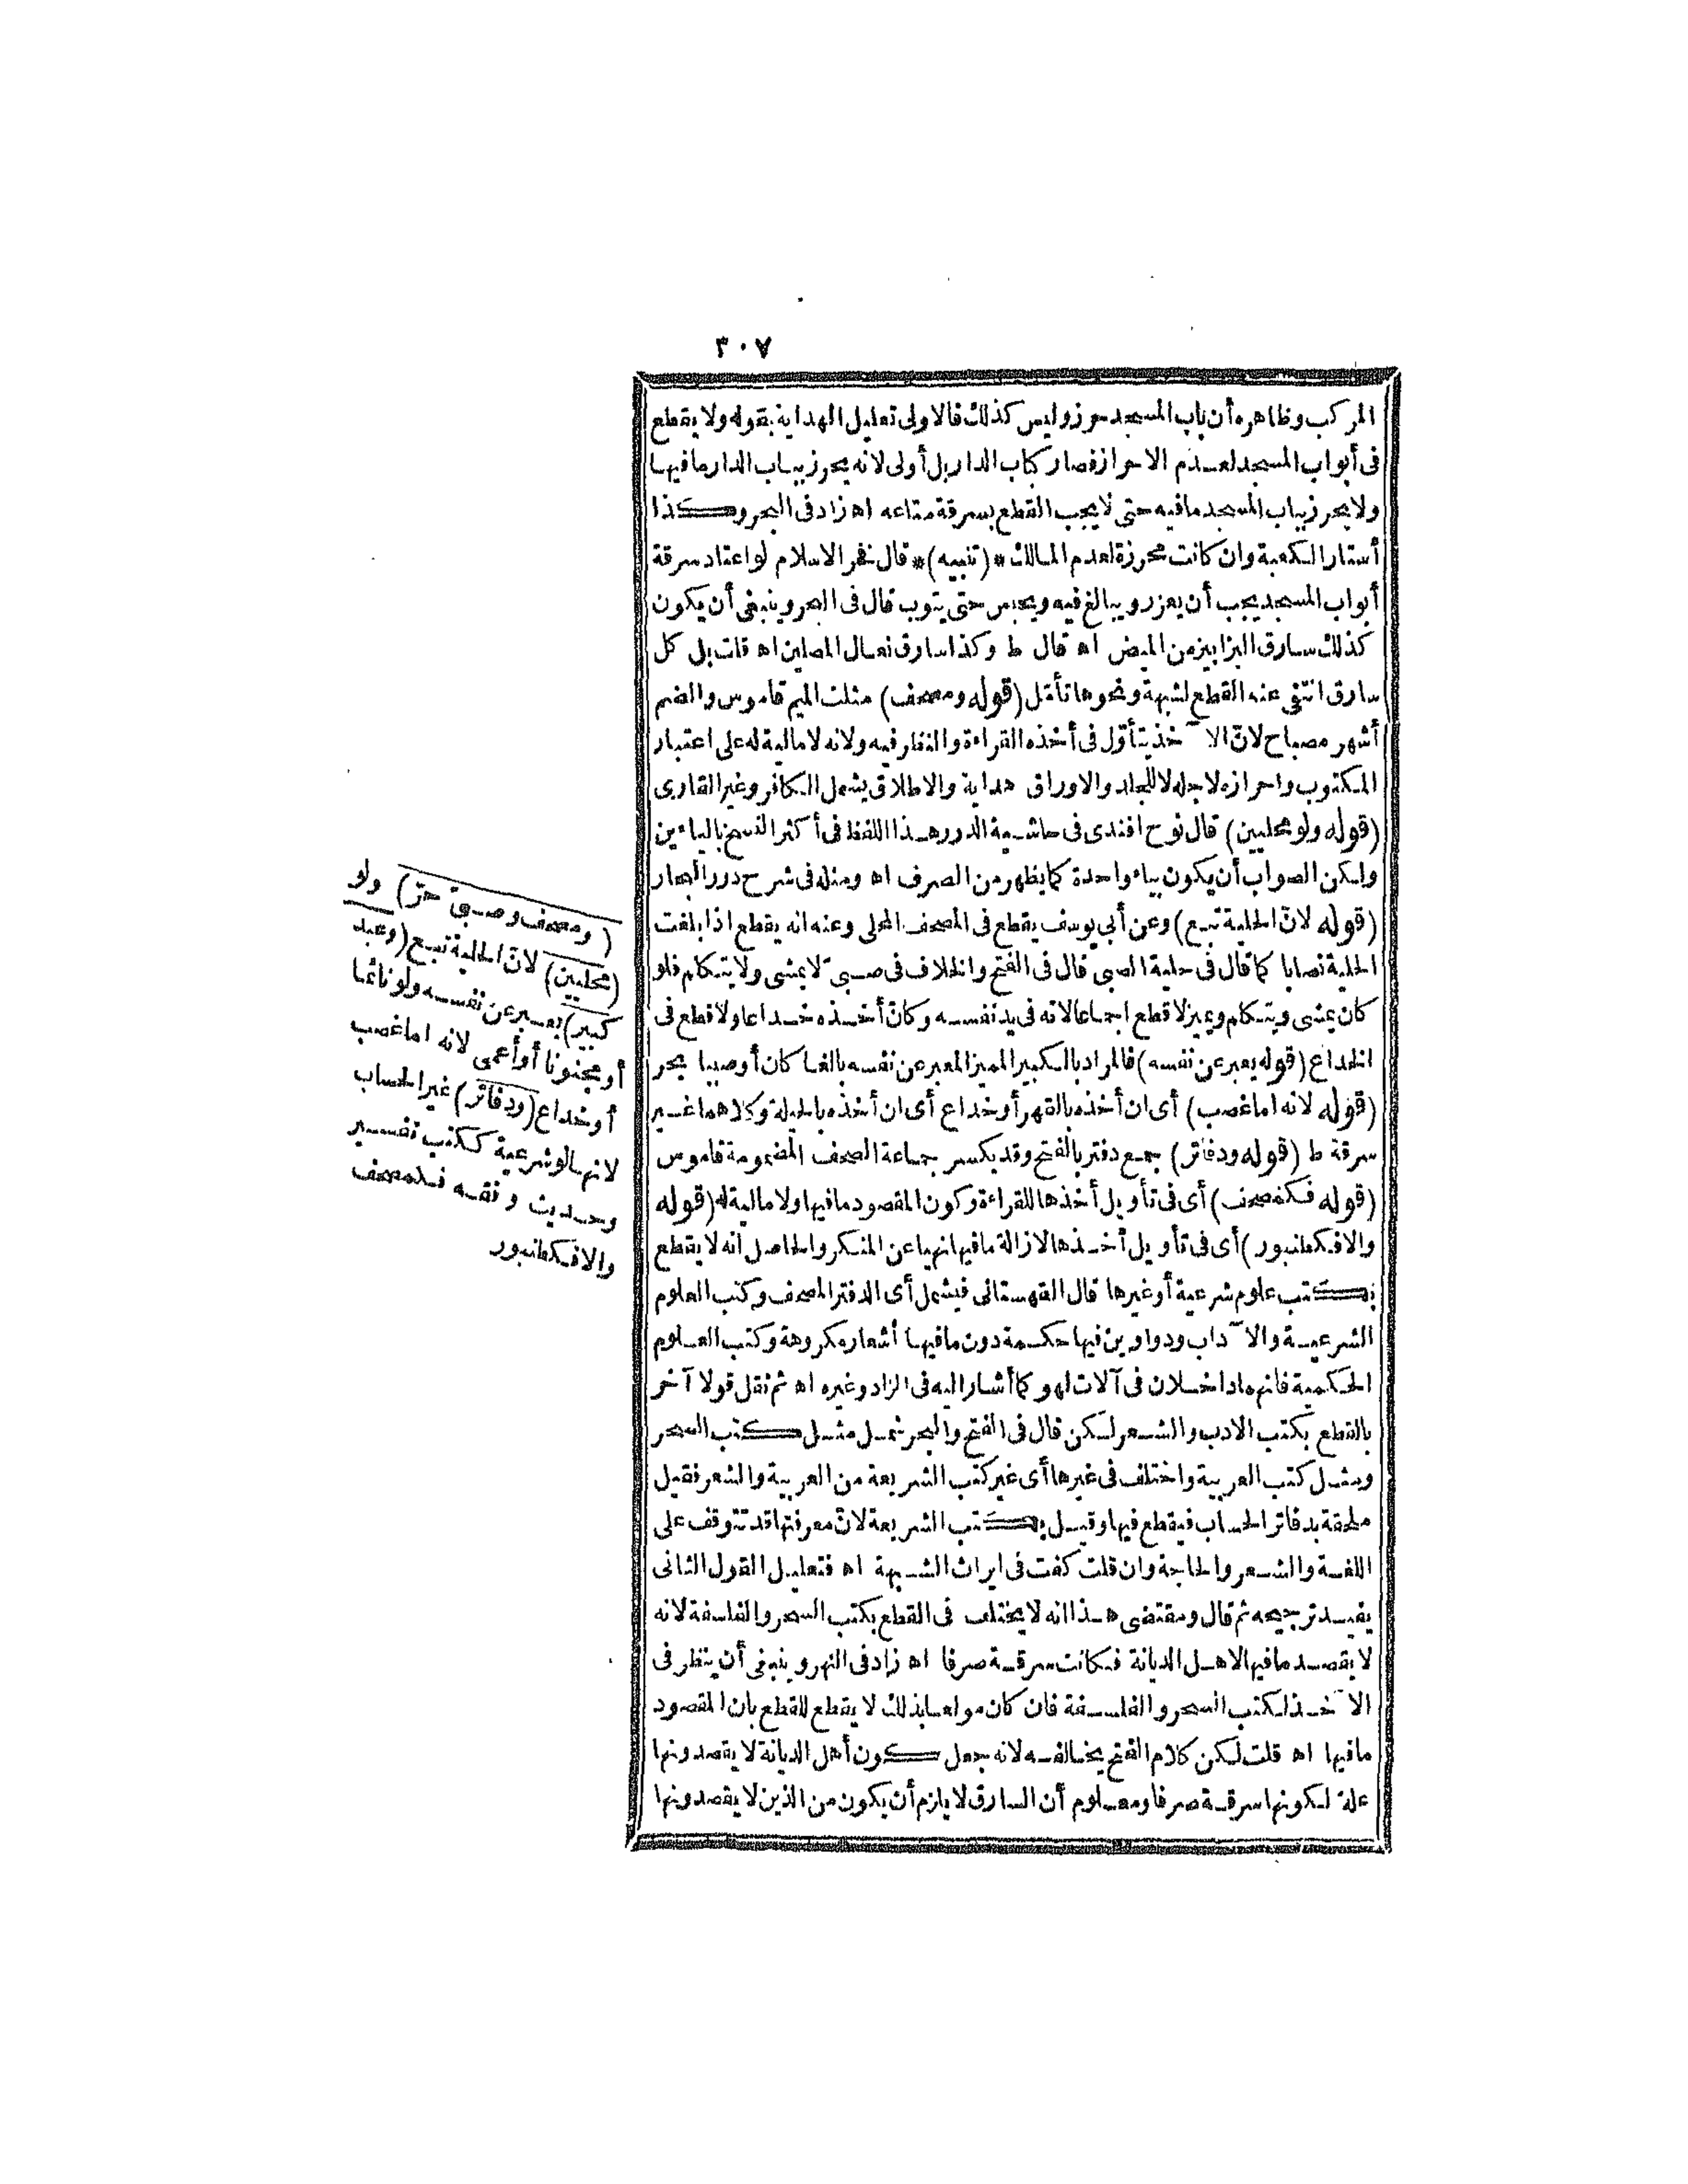 ٣٠٧
المركب وظاهره أن باب المسجد حرز وليس كذلك فالاولى تعليل الهداية بقوله ولا يقطع
فى أبواب المسجد لعدم الاحراز فصار كباب الدار بل أولى لانه يحرز بباب الدار ما فيها
ولا يحرز بباب المسجد ما فيه حتى لا يجب القطع بسرقة متاعه اه زاد فى البحر وكذا
أستار الكعبة وان كانت محرزة لعدم المالك * (تنبيه) * قال فخر الاسلام لو اعتاد سرقة
أبواب المسجد يجب أن يعزر ويبالغ فيه ويحبس حتى يتوب قال فى البحر وينبغى أن يكون
كذلك سارق البزابيز من الميض اه قال ط وكذا سارق نعال المصلين اه قلت بل كل
سارق انتفى عنه القطع لشبهة ونحوها تأمّل (قوله ومصحف) مثلث الميم قاموس والضم
أشهر مصباح لانّ الآخذ يتأوّل فى أخذه القراءة والنظر فيه ولانه لا مالية له على اعتبار
المكتوب واحرازه لاجله لا للجلد والاوراق هداية والاطلاق يشمل الكافر وغير القارى
(قوله ولو محليين) قال نوح افندى فى حاشية الدرر هذا اللفظ فى أكثر النسخ بالياءين
ولكن الصواب أن يكون بياء واحدة كما يظهر من الصرف اه ومثله فى شرح درر البحار
(قوله لانّ الحلية تبع) وعن أبى يوسف يقطع فى المصحف المحلى وعنه انه يقطع اذا بلغت
الحلية نصابا كما قال فى حلية الصبى قال فى الفتح والخلاف فى صبىّ لا يمشى ولا يتكلم فلو
كان يمشى ويتكلم ويميز لا قطع اجماعا لانه فى يد نفسه وكانّ أخذه خداعا ولا قطع فى
الخداع (قوله يعبر عن نفسه) فالمراد بالكبير المميز المعبر عن نفسه بالغا كان أو صبيا بحر
(قوله لانه اما غصب) أى ان أخذه بالقهر أو خداع أى ان أخذه بالحيلة وكلاهما غير
سرقة ط (قوله ودفاتر) جمع دفتر بالفتح وقد يكسر جماعة الصحف المضمومة قاموس
(قوله فكمصحف) أى فى تأويل أخذها للقراءة وكون المقصود ما فيها ولا مالية له (قوله
والا فكطنبور) أى فى تأويل أخذها لازالة ما فيها نهيا عن المنكر والحاصل انه لا يقطع
بكتب علوم شرعية أو غيرها قال القهستانى فيشمل أى الدفتر المصحف وكتب العلوم
الشرعية والآداب ودواوين فيها حكمة دون ما فيها أشعار مكروهة وكتب العلوم
الحكمية فانهما داخلان فى آلات لهو كما أشار اليه فى الزاد وغيره اه ثم نقل قولا آخر
بالقطع بكتب الادب والشعر لكن قال فى الفتح والبحر شمل مثل كتب السحر
ومثل كتب العربية واختلف فى غيرها أى غير كتب الشريعة من العربية والشعر فقيل
ملحقة بدفاتر الحساب فيقطع فيها وقيل بكتب الشريعة لانّ معرفتها قد تتوقف على
اللغة والشعر والحاجة وان قلت كفت فى ايراث الشبهة اه فتعليل القول الثانى
يفيد ترجيحه ثم قال ومقتضى هذا انه لا يختلف فى القطع بكتب السحر والفلسفة لانه
لا يقصد ما فيها لاهل الديانة فكانت سرقة صرفا اه زاد فى النهر وينبغى أن ينظر فى
الآخذ لكتب السحر والفلسفة فان كان مولعا بذلك لا يقطع للقطع بان المقصود
ما فيها اه قلت لكن كلام الفتح يخالفه لانه جعل كون أهل الديانة لا يقصدونها
علة لكونها سرقة صرفا ومعلوم أن السارق لا يلزم أن يكون من الذين لا يقصدونها
(ومصحف وصبىّ حرّ) ولو
(محليين) لانّ الحلية تبع (وعبد
كبير) يعبر عن نفسه ولو نائما
أو مجنونا أو أعمى لانه اما غصب
أو خداع (ودفاتر) غير الحساب
لانها لو شرعية ككتب تفسير
وحديث وفقه فكمصحف
والا فكطنبور